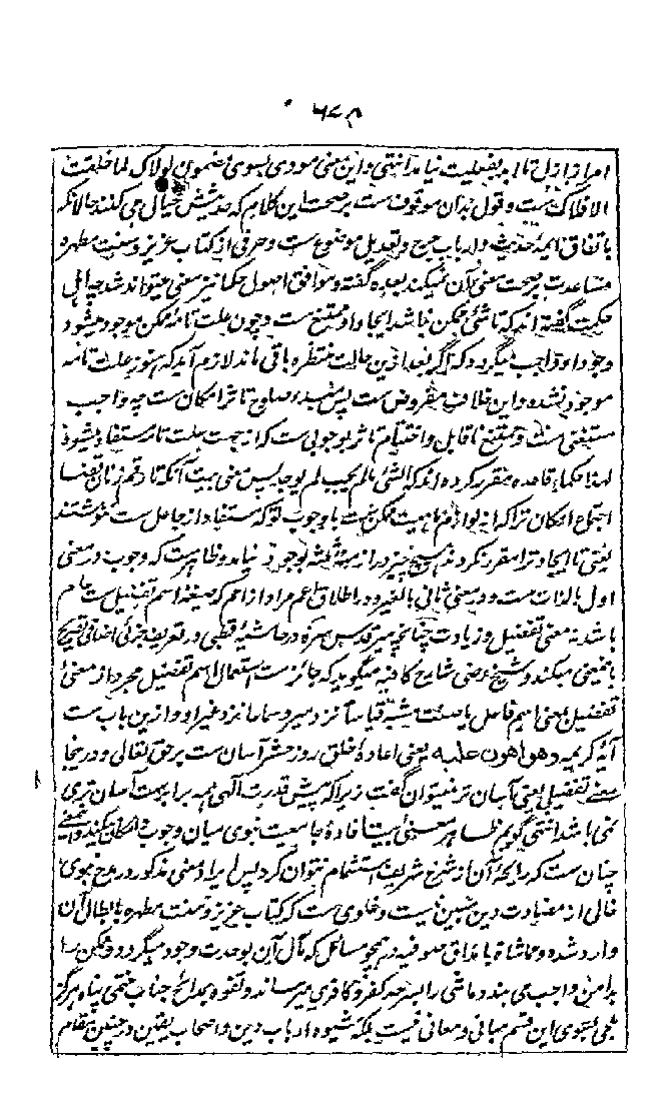 ۶۷۵
امر از ازل تا ابد بفعلیت نیامد انتهی و این معنی مودی بسوی مضمون لولاک لما خلقت
الافلاک ست و قول بدان موقوف ست بر صحت این کلام که حدیثش خیال می کنند حالانکه
باتفاق ائمه حدیث و ارباب جرح و تعدیل موضوع ست و حرفی از کتاب عزیز و سنت مطهره
مساعدت بر صحت معنی آن نمیکند بعده گفته و موافق اصول حکما نیز معنی میتواند شد چه اهل
حکمت گفته اند که تا شئ ممکن نباشد ایجاد او ممتنع ست و چون علت تامه ممکن موجود میشود
وجود او واجب میگردد که اگر بعد ازین حالت منتظره باقی ماند لازم آید که هنوز علت تامه
موجود نشده و این خلاف مفروض ست پس صالح تاثر امکان ست چه واجب
مستغنی است و ممتنع ناقابل و اختتام تاثر بوجوبی ست که از جهت علت تامه مستفاد میشود
لهذا حکما قاعده مقرر کرده اند که الشئ ما لم یجب لم یوجد پس معنی بیت آنکه تا رقم زنان قضا
اجتماع امکان ترا که از لوازم ماهیت ممکن ست با وجوب تو که مستفاد از جاعل ست ننوشتند
یعنی تا ایجاد ترا مقرر نکردند هیچ چیز در بوجود نیامد و ظاهر ست که وجوب در معنی
اول بالذات ست و در معنی ثانی بالغیر و در اطلاق اعم مراد از اعم که صیغه اسم تفضیل ست عام
باشد نه معنی تفضیل و زیادت چنانچه میر قدس سره در حاشیه قطبی در تعریف جزئی اضافی تصریح
باینمعنی میکند و شیخ رضی شارح کافیه میگوید که جائز ست استعمال اسم تفضیل مجرد از معنی
تفضیل بمعنی اسم فاعل یا صفت مشبه قیاسا نزد مبرد و سماعا نزد غیر او و ازین باب ست
آیه کریمه وهو اهون علیه یعنی اعاده خلق روز حشر آسان ست بر حق تعالی و درینجا
معنی تفضیل یعنی آسان تر نمیتوان گفت زیرا که پیش قدرت الهی همه برابرست آسان تری
نمی باشد انتهی گویم ظاهر معنی بیت افاده جامعیت نبوی میان وجوب و امکان میکند و اینمعنی
چنان ست که رایحه آن از شرع شریف استشمام نتوان کرد پس ایراد معنی مذکور در مدح نبوی
خالی از مضادت دین مبین نیست و دعاوی ست که کتاب عزیز و سنت مطهره بابطال آن
وارد شده و مماشاة با مذاق صوفیه در همچو مسائل که مآل آن بوحدت وجود میگردد و ممکن را
بدامن واجب می بندد ماشی را بسرحد کفر و کافری میرساند و تفوه بمدائح جناب ختمی پناه هرگز
این قسم مبانی و معانی نیست بلکه شیوه ارباب دین و اصحاب یقین در چنین مقام